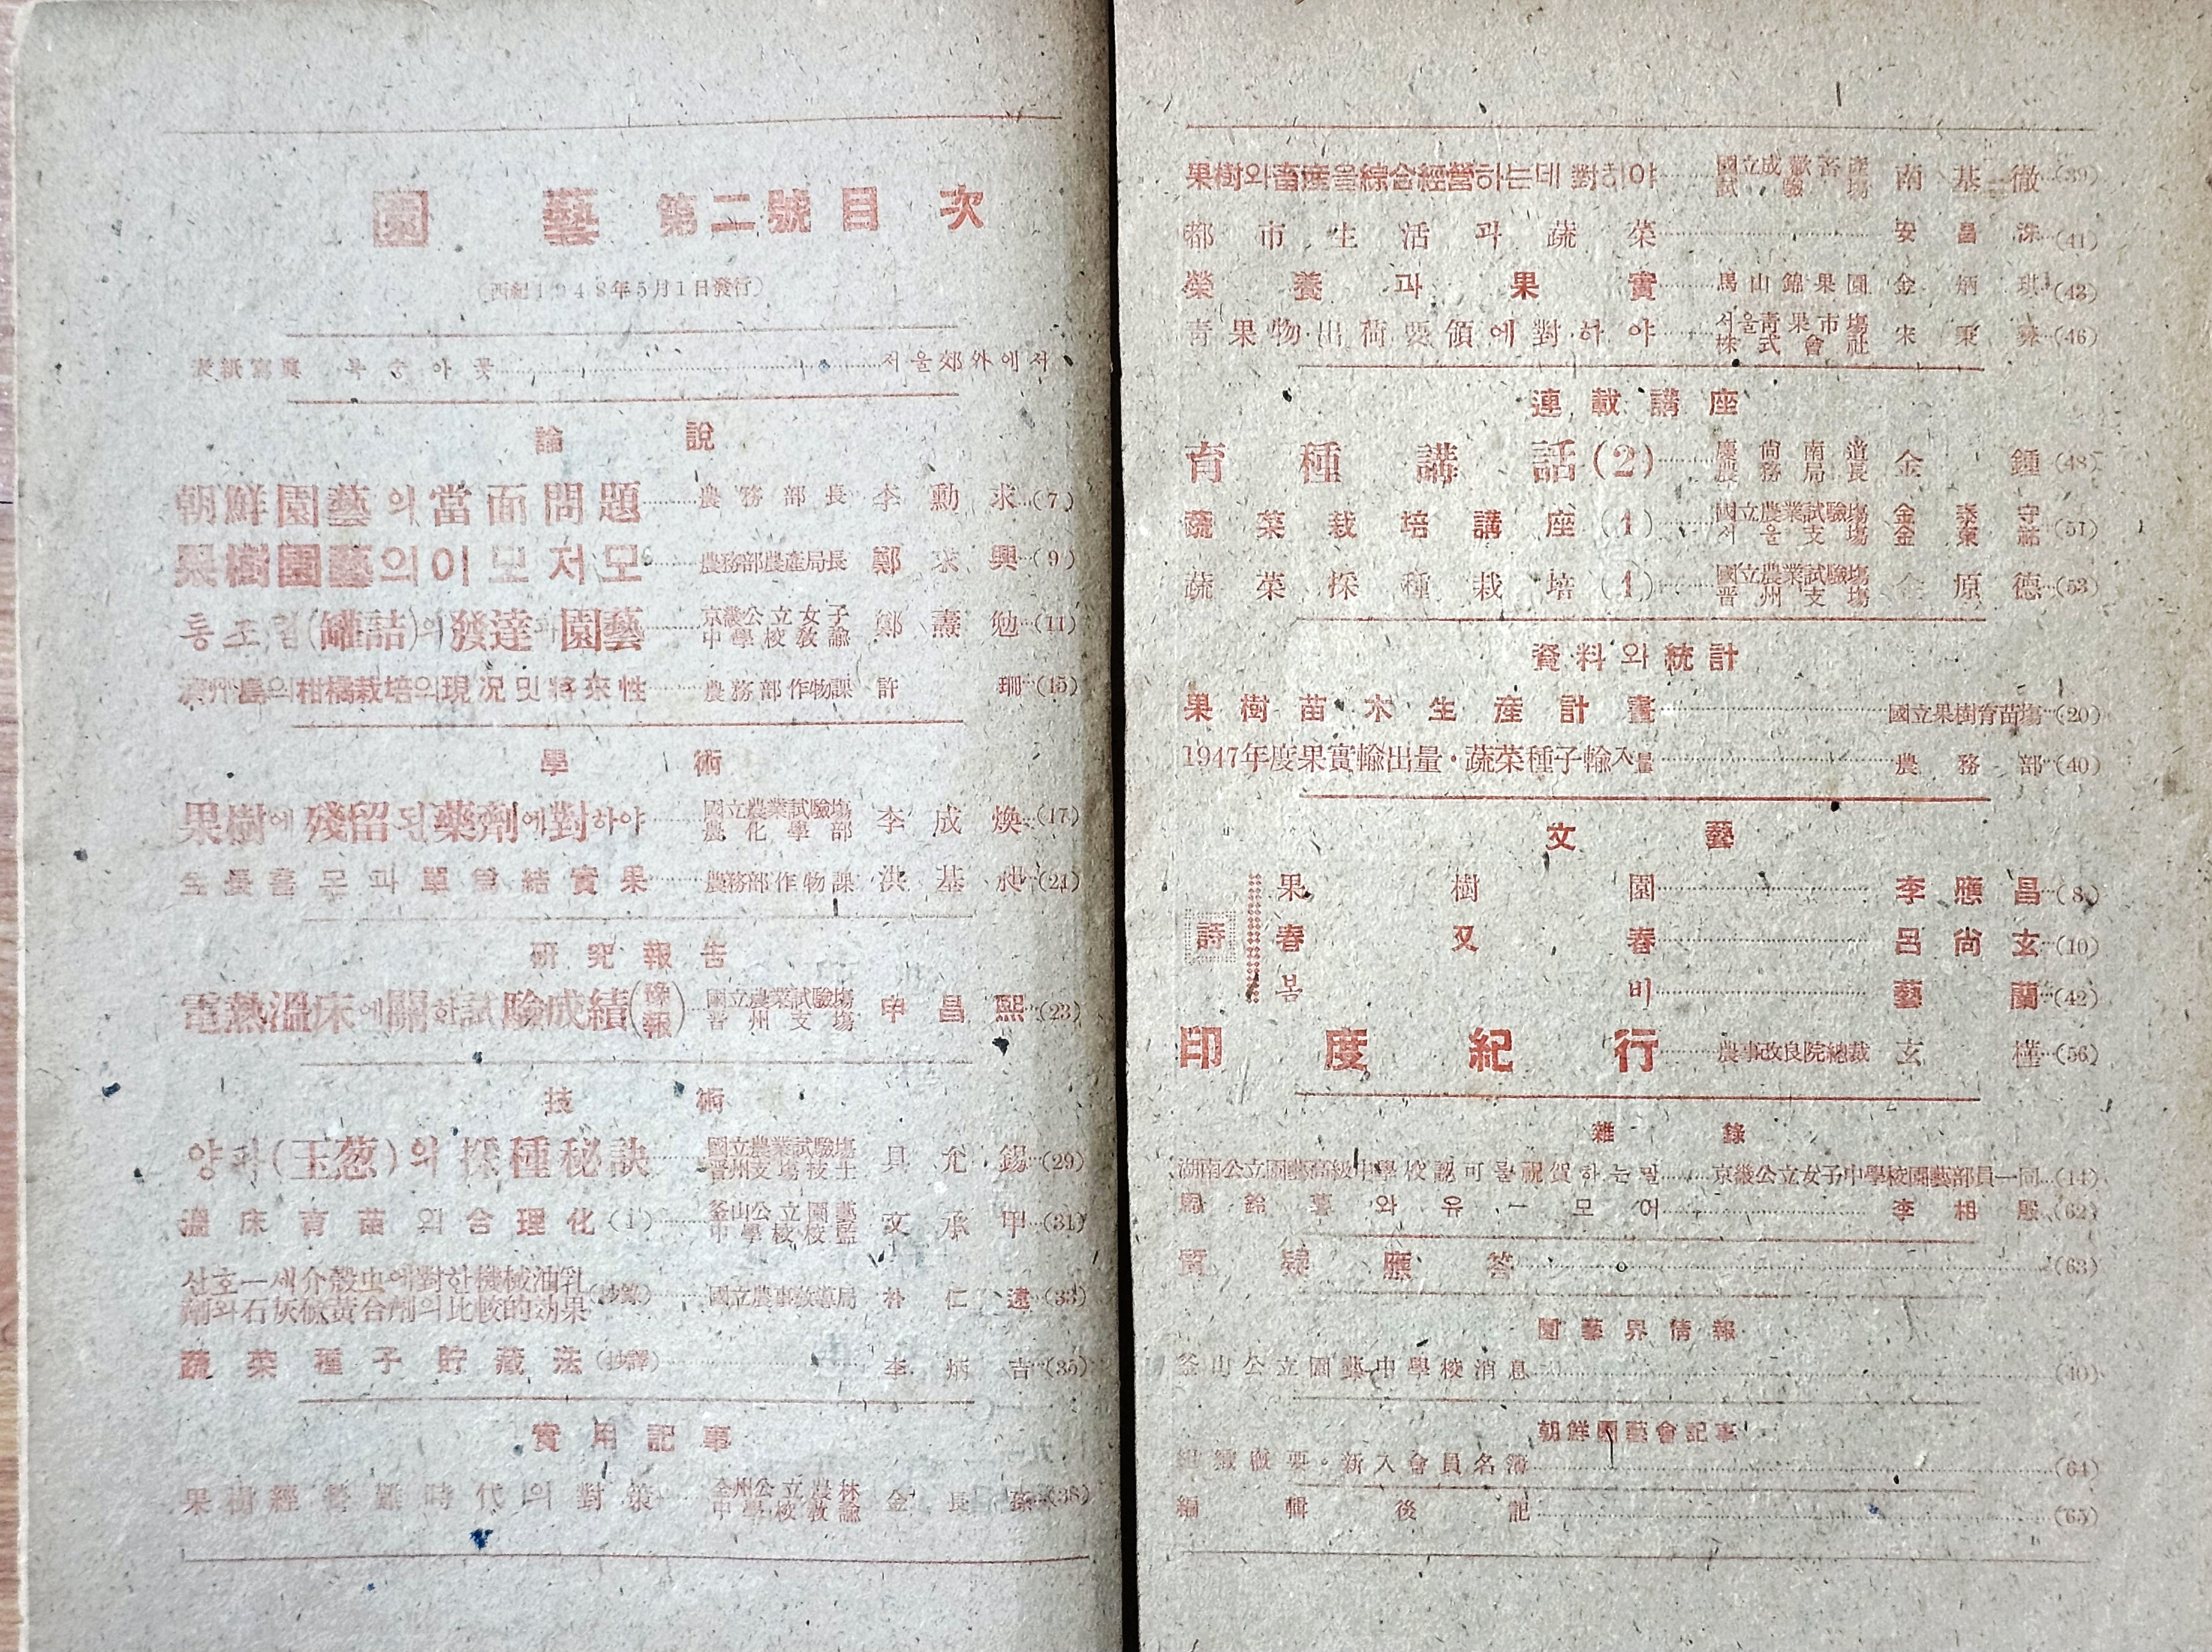 園藝 第二號目次
(西紀1948年5月1日發行)
表紙寫眞 복숭아꽃 서울郊外에서
論說
朝鮮園藝의當面問題 農務部長 李勳求 (7)
果樹園藝의이모저모 農務部農產局長 鄭求興 (9)
통조림(罐詰)의發達과園藝 京畿公立女子中學校敎諭 鄭壽勉 (11)
濟州島의柑橘栽培의現況및將來性 農務部作物課 許 (15)
學術
果樹에殘留된藥劑에對하야 國立農業試驗場農化學部 李成煥 (17)
生長홀몬과單爲結實果 農務部作物課 洪基昶 (21)
硏究報告
電熱溫床에關한試驗成績(豫報) 國立農業試驗場晋州支場 申昌熙 (23)
技術
양파(玉葱)의採種秘訣 國立農業試驗場晋州支場技士 具允錫 (29)
溫床育苗의合理化(1) 釜山公立園藝中學校校監 文承甲 (31)
산호—세介殼虫에對한機械油乳
劑와石灰硫黃合劑의比較的効果(抄錄) 國立農事敎導局 朴仁遠 (33)
蔬菜種子貯藏法(抄譯) 李炳吉 (35)
實用記事
果樹經營難時代의對策 全州公立農林中學校敎諭 金長孫 (38)
果樹와畜産을綜合經營하는데對하야 國立成歡畜產試驗場 南基徹 (39)
都市生活과蔬菜 安昌洙 (41)
榮養과果實 馬山錦果園 金炳琪 (43)
靑果物出荷要領에對하야 서울靑果市場株式會社 宋秉 (46)
連載講座
育種講話(2) 慶尙南道農務局長 金鍾 (48)
蔬菜栽培講座(1) 國立農業試驗場서울支場 金泰守 金東祐 (51)
蔬菜採種栽培(1) 國立農業試驗場晋州支場 金原德 (53)
資料와統計
果樹苗木生産計畫 國立果樹育苗場 (20)
1947年度果實輸出量・蔬菜種子輸入量 農務部 (40)
文藝
詩 果樹園 李應昌 (8)
春又春 呂尙玄 (10)
봄비 藝蘭 (42)
印度紀行 農事改良院總裁 玄槿 (56)
雜錄
湖南公立園藝高級中學校認可를祝賀하는말 京畿公立女子中學校園藝部員一同 (14)
馬鈴薯와유ー모어 李相殷 (62)
質疑應答 (63)
園藝界情報
釜山公立園藝中學校消息 (40)
朝鮮園藝會記事
組織槪要・新入會員名簿 (64)
編輯後記 (65)